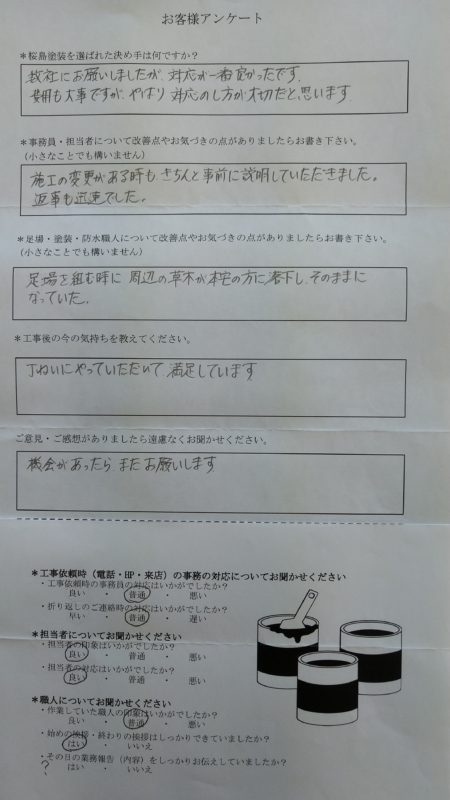 お客様アンケート
＊桜島塗装を選ばれた決め手は何ですか？
数社にお願いしましたが、対応が一番良かったです。
費用も大事ですが、やはり対応のし方が大切だと思います
＊事務員・担当者について改善点やお気づきの点がありましたらお書き下さい。
(小さなことでも構いません)
施工の変更がある時も きちんと事前に説明していただきました。
返事も迅速でした。
＊足場・塗装・防水職人について改善点やお気づきの点がありましたらお書き下さい。
(小さなことでも構いません)
足場を組む時に 周辺の草木が本宅の方に落下し、そのままに
なっていた。
＊工事後の今の気持ちを教えてください。
丁ねいにやっていただいて 満足しています
ご意見・ご感想がありましたら遠慮なくお聞かせください。
機会があったら、またお願いします
＊工事依頼時（電話・HP・来店）の事務の対応についてお聞かせください
・工事依頼時の事務員の対応はいかがでしたか？
良い ・ 普通 ・ 悪い
・折り返しのご連絡時の対応はいかがでしたか？
早い ・ 普通 ・ 遅い
＊担当者についてお聞かせください
・担当者の印象はいかがでしたか？
良い ・ 普通 ・ 悪い
・担当者の対応はいかがでしたか？
良い ・ 普通 ・ 悪い
＊職人についてお聞かせください
・作業していた職人の印象はいかがでしたか？
良い ・ 普通 ・ 悪い
・始めの挨拶・終わりの挨拶はしっかりできていましたか？
はい ・ いいえ
・その日の業務報告（内容）をしっかりお伝えしていましたか？
? はい ・ いいえ